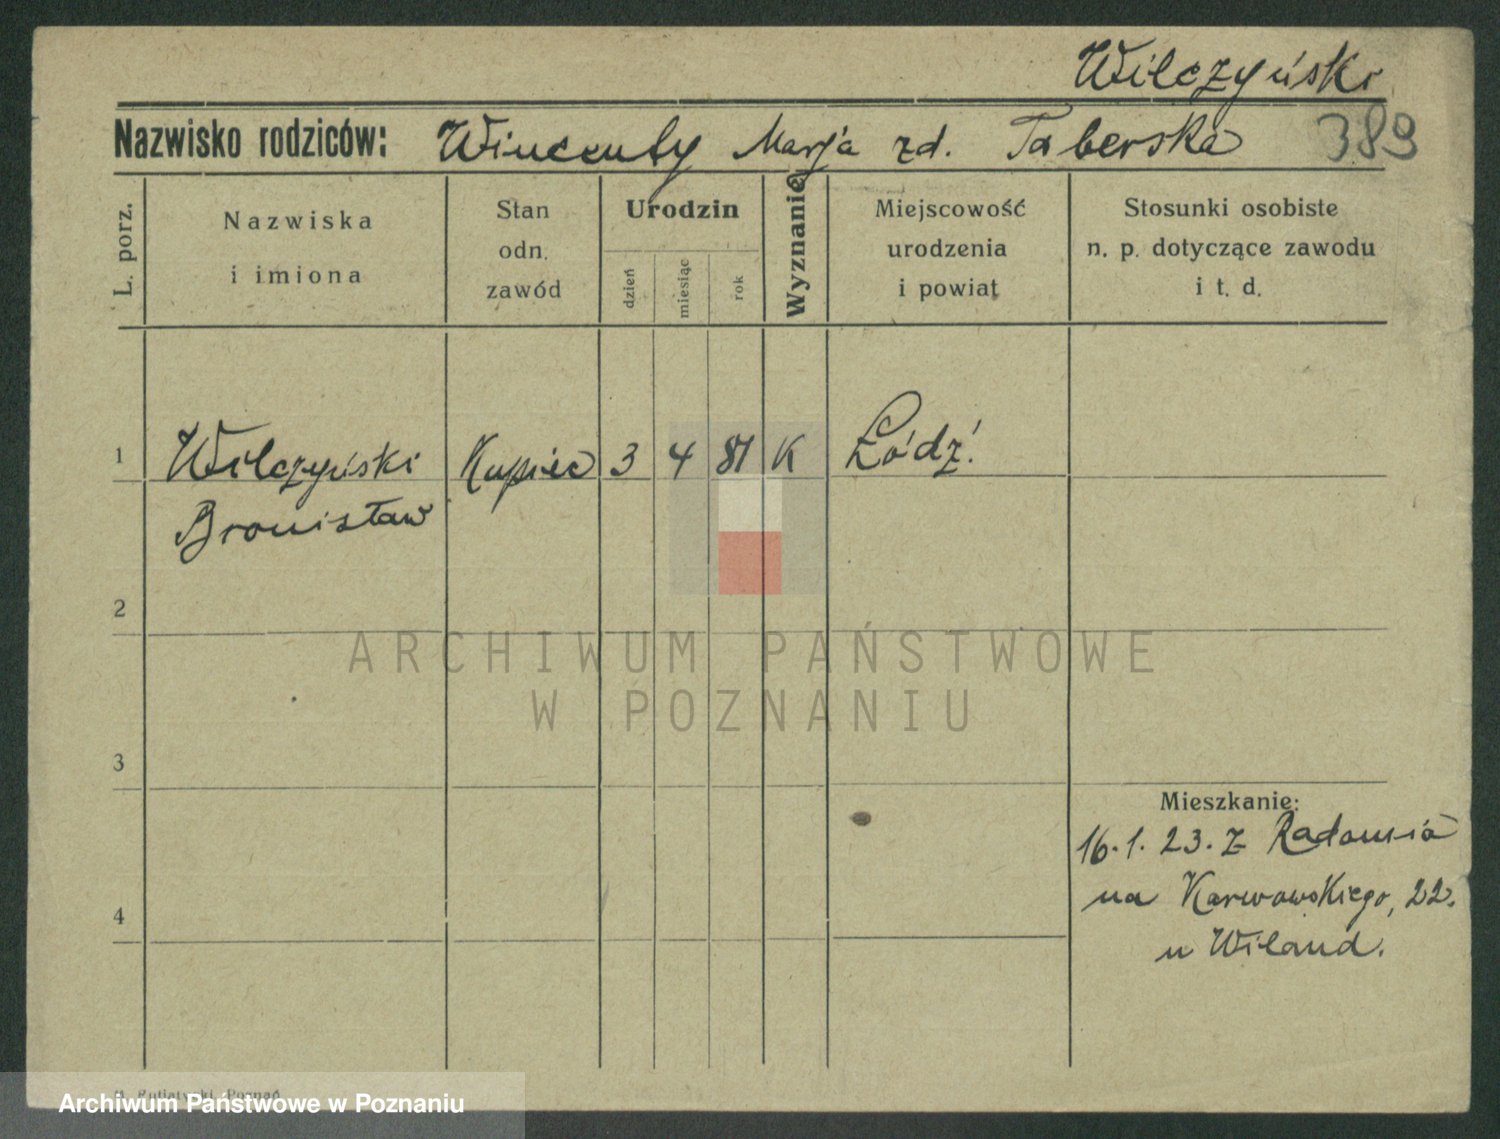 Wilczyński
Nazwisko rodziców: Wincenty Marja zd. Taberska 389
L. porz.
Nazwiska
i imiona
Stan
odn.
zawód
Urodzin
dzień
miesiąc
rok
Wyznanie
Miejscowość
urodzenia
i powiat
Stosunki osobiste
n. p. dotyczące zawodu
i t. d.
1 Wilczyński Kupiec 3 4 81 K Łódź.
Bronisław
2
ARCHIWUM PAŃSTWOWE
W POZNANIU
3
Mieszkanie:
16.1.23. z Radomia
4 na Karwowskiego, 22.
u Wiland.
Poznań
Archiwum Państwowe w Poznaniu